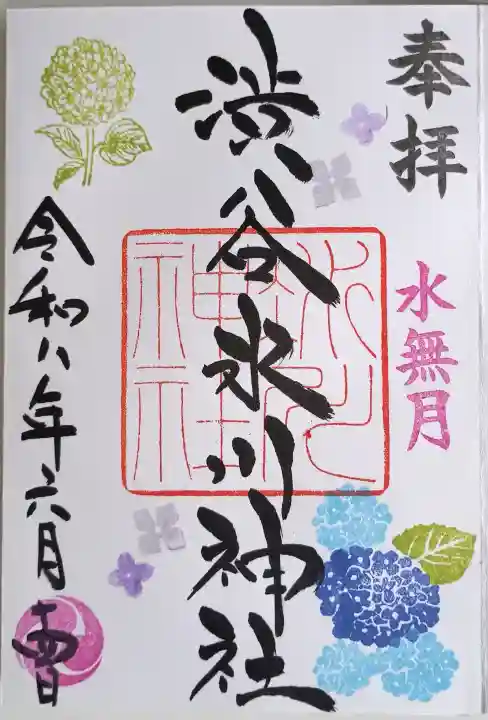 奉拝
水無月
渋谷氷川神社
氷川
神社
令和八年六月